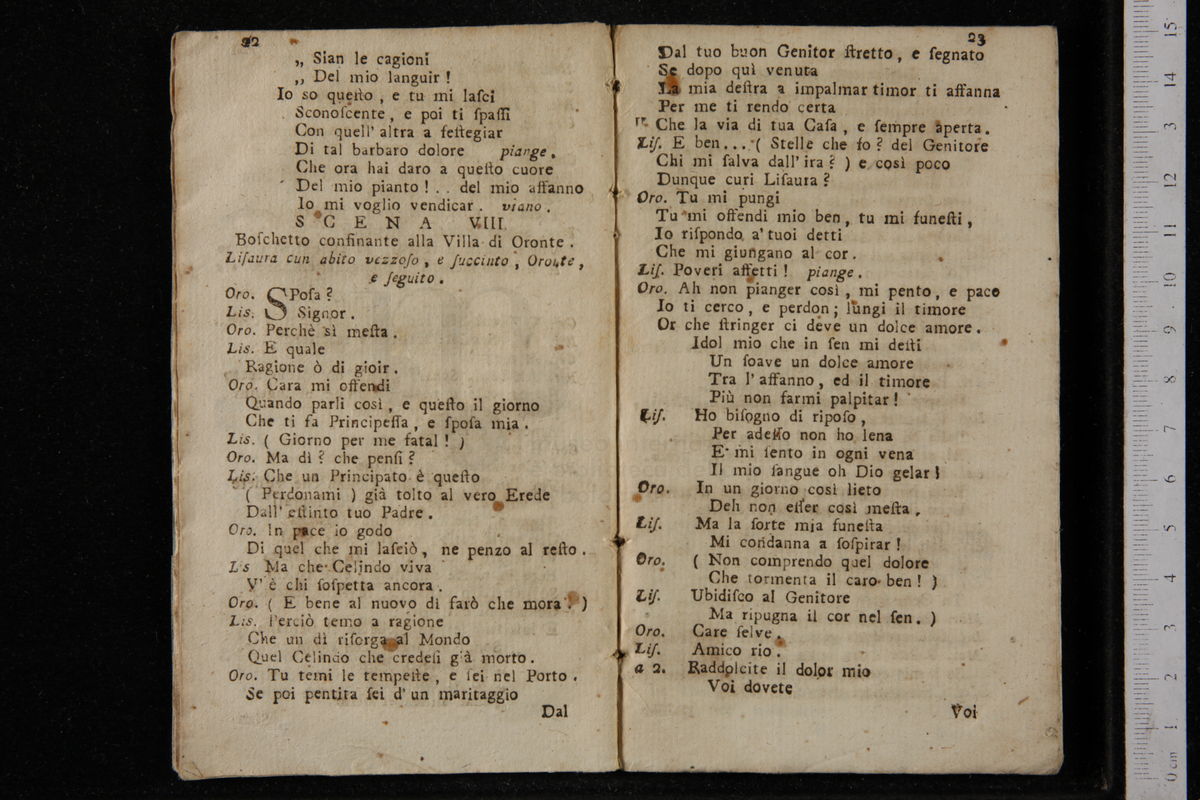 22
„ Sian le cagioni
„ Del mio languir !
Io so queſto , e tu mi laſci
Sconoſcente , e poi ti ſpaſſi
Con quell' altra a feſtegiar
Di tal barbaro dolore piange .
Che ora hai daro a queſto cuore
Del mio pianto ! . . del mio affanno
Io mi voglio vendicar . viano .
S C E N A VIII.
Boſchetto confinante alla Villa di Oronte .
Liſaura cun abito vezzoſo , e ſuccinto , Oronte ,
e ſeguito .
Oro. SPoſa ?
Lis. Signor .
Oro. Perchè sì meſta .
Lis. E quale
Ragione ò di gioir .
Oro. Cara mi offendi
Quando parli così , e queſto il giorno
Che ti fa Principeſſa , e ſpoſa mia .
Lis. ( Giorno per me fatal ! )
Oro. Ma dì ? che penſi ?
Lis. Che un Principato è queſto
( Perdonami ) già tolto al vero Erede
Dall' eſtinto tuo Padre .
Oro. In pace io godo
Di quel che mi laſeiò , ne penzo al reſto .
L's Ma che Celindo viva
V' è chi ſoſpetta ancora .
Oro. ( E bene al nuovo dì farò che mora . )
Lis. Perciò temo a ragione
Che un dì riſorga al Mondo
Quel Celindo che credeſi già morto .
Oro. Tu temi le tempeſte , e ſei nel Porto .
Se poi pentita ſei d' un maritaggio
Dal
23
Dal tuo buon Genitor ſtretto , e ſegnato
Se dopo quì venuta
La mia deſtra a impalmar timor ti affanna
Per me ti rendo certa
Che la via di tua Caſa , e ſempre aperta .
Liſ. E ben . . . ( Stelle che fo ? del Genitore
Chi mi ſalva dall' ira ? ) e così poco
Dunque curi Liſaura ?
Oro. Tu mi pungi
Tu mi offendi mio ben , tu mi funeſti ,
Io riſpondo a' tuoi detti
Che mi giungano al cor .
Liſ. Poveri affetti ! piange .
Oro. Ah non pianger così , mi pento , e pace
Io ti cerco , e perdon ; lungi il timore
Or che ſtringer ci deve un dolce amore .
Idol mio che in ſen mi deſti
Un ſoave un dolce amore
Tra l' affanno , ed il timore
Più non farmi palpitar !
Liſ. Ho biſogno di ripoſo ,
Per adeſſo non ho lena
E' mi ſento in ogni vena
Il mio ſangue oh Dio gelar !
Oro. In un giorno così lieto
Deh non eſſer così meſta ,
Liſ. Ma la ſorte mia funeſta
Mi condanna a ſoſpirar !
Oro. ( Non comprendo quel dolore
Che tormenta il caro ben ! )
Liſ. Ubidiſco al Genitore
Ma ripugna il cor nel ſen . )
Oro. Care ſelve .
Liſ. Amico rio .
a 2. Raddolcite il dolor mio
Voi dovete
Voi
0 cm 1 2 3 4 5 6 7 8 9 10 11 12 13 14 15